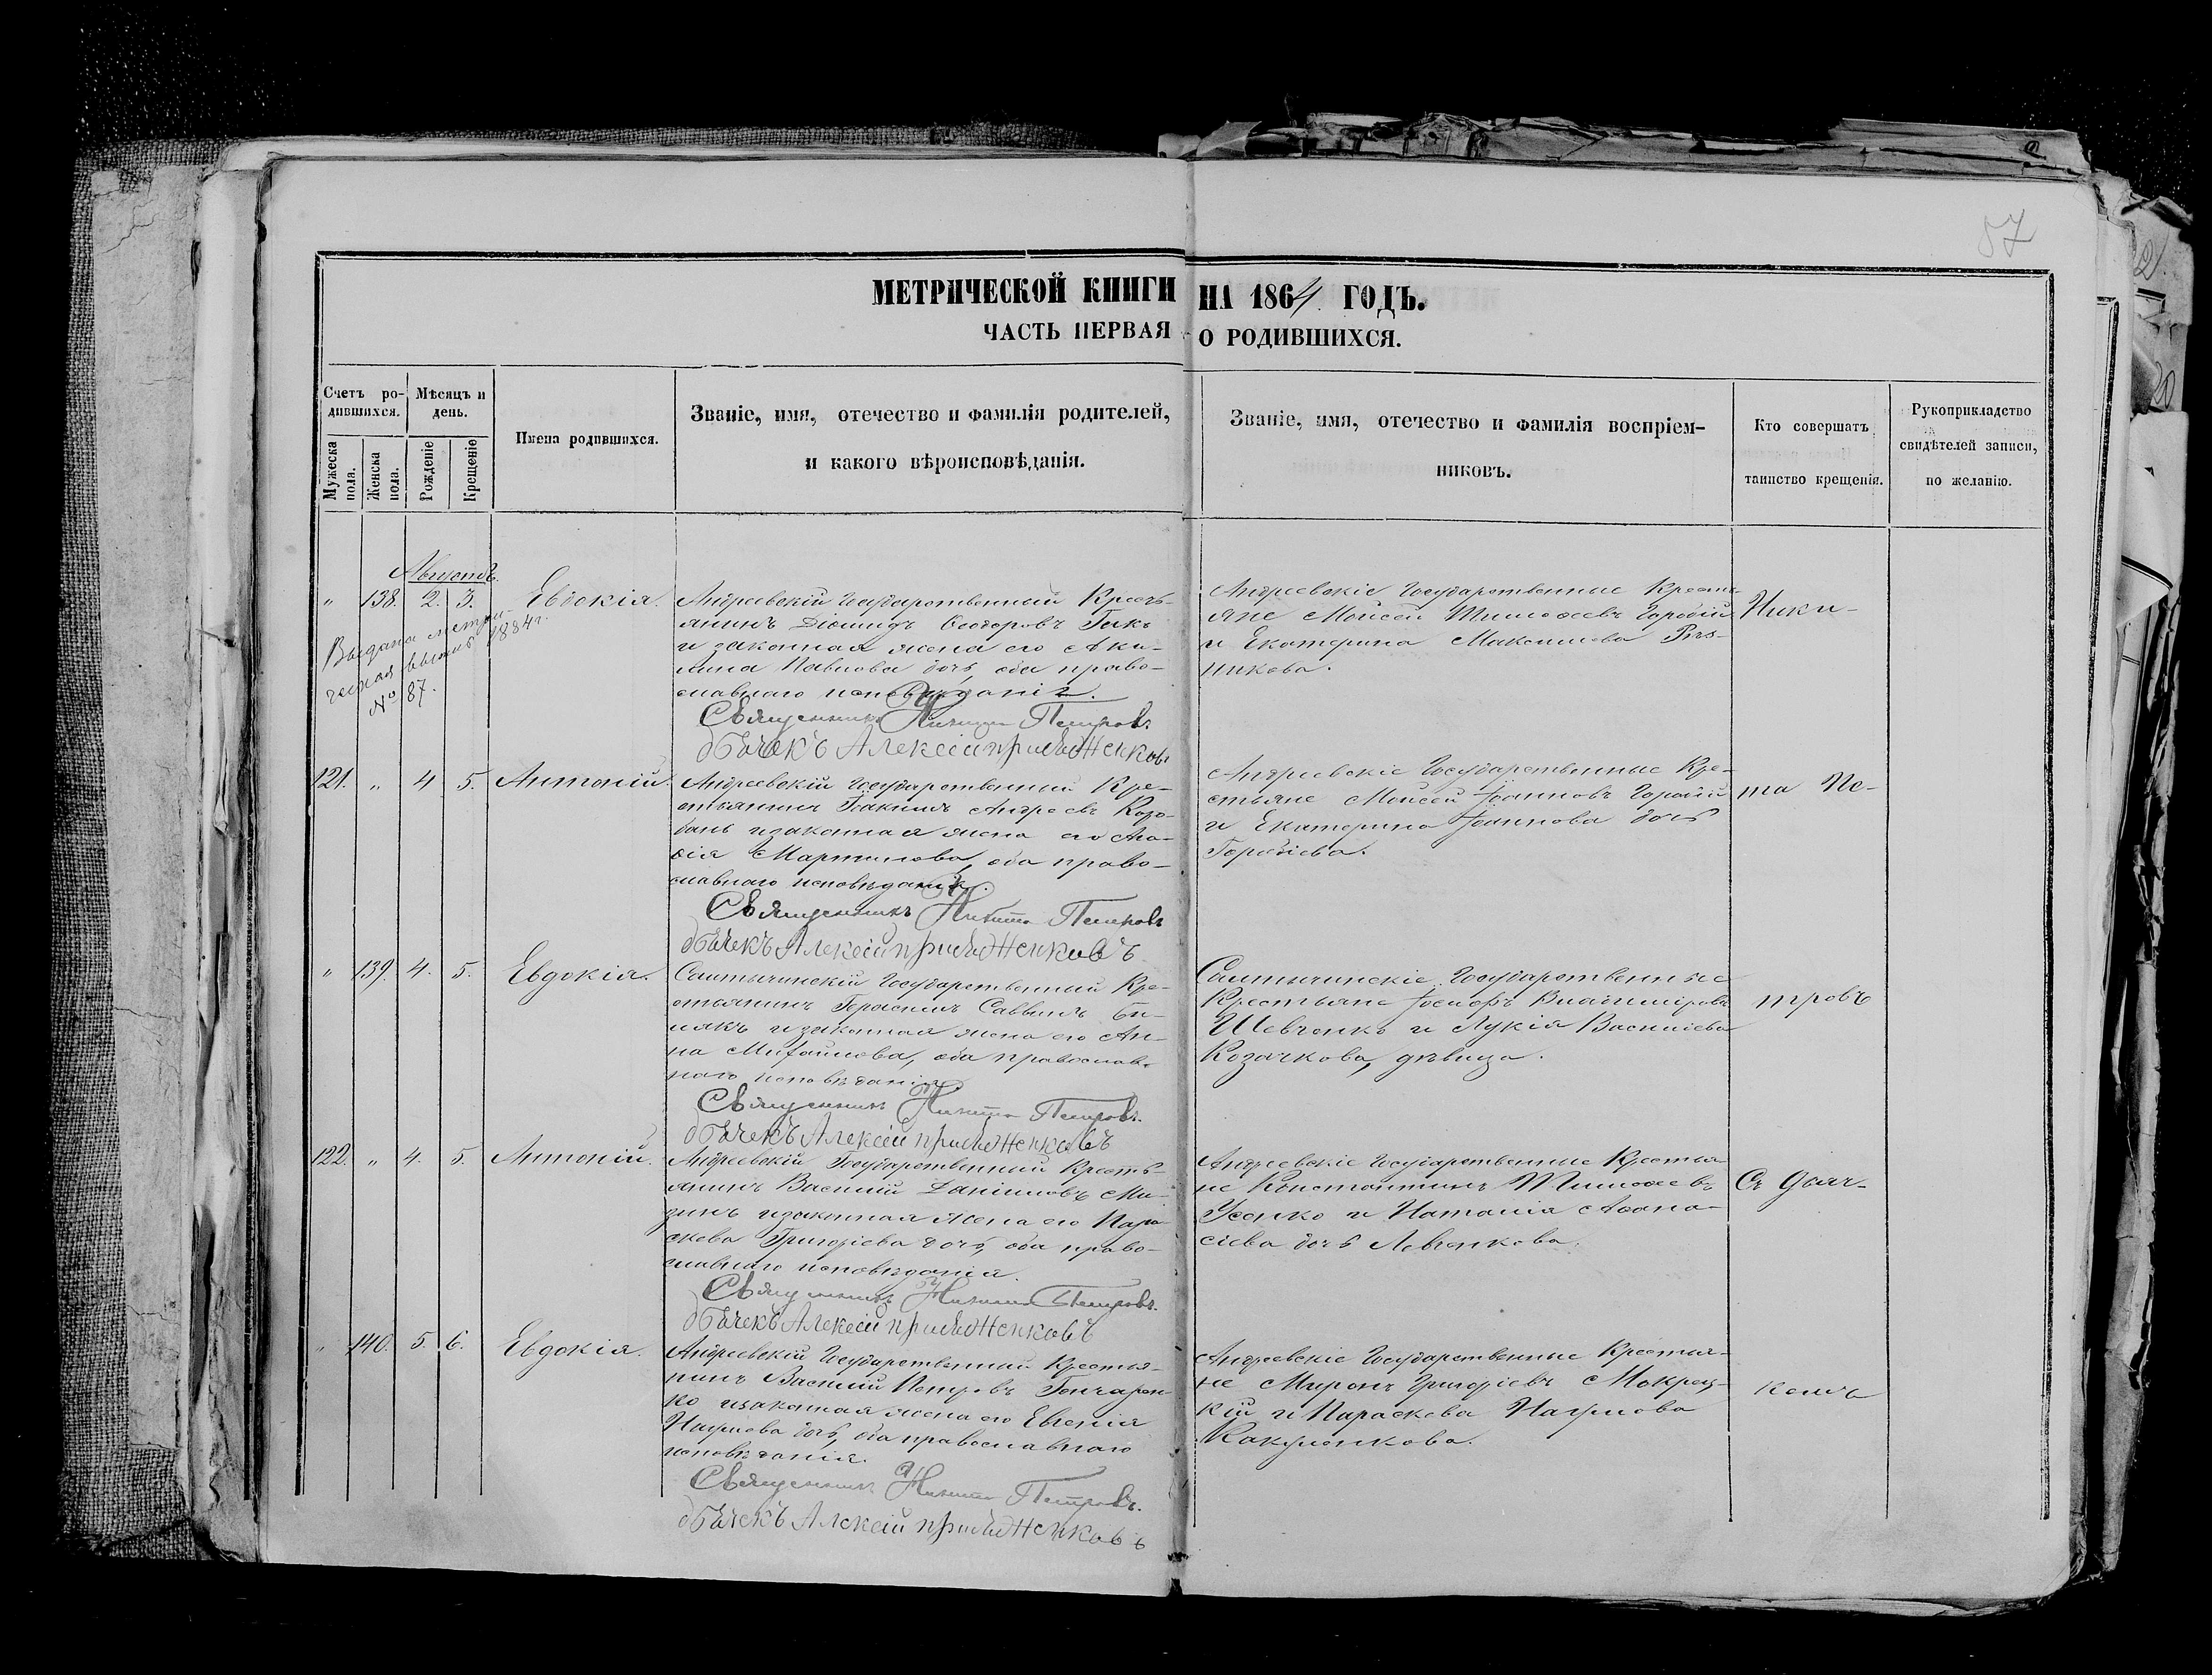 87
МЕТРИЧЕСКОЙ КНИГИ НА 1864 ГОДЪ.
ЧАСТЬ ПЕРВАЯ О РОДИВШИХСЯ.
Счетъ ро-
дившихся.
Мужеска
пола.
Женска
пола.
Мѣсяцъ и
день.
Рожденіе
Крещеніе
Имена родившихся.
Званіе, имя, отечество и фамилія родителей,
и какого вѣроисповѣданія.
Званіе, имя, отечество и фамилія воспріем-
никовъ.
Кто совершалъ
таинство крещенія.
Рукоприкладство
свидѣтелей записи,
по желанію.
Августъ.
" 138. 2. 3. Евдокія.
Выдана метри-
ческая выпись 1884 г.
№ 87.
Андреевскій Государственный Кресть-
янинъ Діомидъ Ѳеодоровъ
и законная жена его Аки-
лина Павлова дочь, оба право-
славнаго исповѣданія.
Священникъ Никита Петровъ
дьячекъ Алексій
Андреевскіе Государственные Кресть-
яне Моисей Тимоѳеевъ Горобій
и Екатерина Максимова Рѣз-
никова.
Ники-
121. " 4 5. Антоній.
Андреевскій Государственный Кре-
стьянинъ Іоакимъ Андреевъ Коро-
бань и законная жена его Ага-
ѳія Мартинова, оба право-
славнаго исповѣданія.
Священникъ Никита Петровъ
дьячекъ Алексій
Андреевскіе Государственные Кре-
стьяне Моисей Іоанновъ Горобій
и Екатерина Іоаннова дочь
Горобіева.
та Пе-
" 139. 4. 5. Евдокія.
Салтычинскій Государственный Кре-
стьянинъ Герасимъ Саввинъ Би-
лякъ и законная жена его Ан-
на Михайлова, оба православ-
наго исповѣданія.
Священникъ Никита Петровъ.
дьячекъ Алексій
Салтычинскіе Государственные
Крестьяне Іосифъ Владиміровъ
Шевченко и Лукія Василіева
Козачкова, дѣвица.
тровъ
122. " 4. 5. Антоній.
Андреевскій Государственный Кресть-
янинъ Василій Даніиловъ Ми-
зинъ и законная жена его Пара-
скева Григоріева дочь, оба право-
славнаго исповѣданія.
Священникъ Никита Петровъ.
дьячекъ Алексій
Андреевскіе Государственные Крестья-
не Константинъ Тимоѳеевъ
Усенко и Наталія Аѳана-
сіева дочь Левченкова.
Съ дьяч-
" 140. 5. 6. Евдокія.
Андреевскій Государственный Крестья-
нинъ Василій Петровъ Гончарен-
ко и законная жена его Евгенія
Наумова дочь, оба православнаго
исповѣданія.
Священникъ Никита Петровъ.
дьячекъ Алексій
Андреевскіе Государственные Крестья-
не Миронъ Григоріевъ Мокрец-
кій и Параскева Наумова
Какуленкова.
комъ